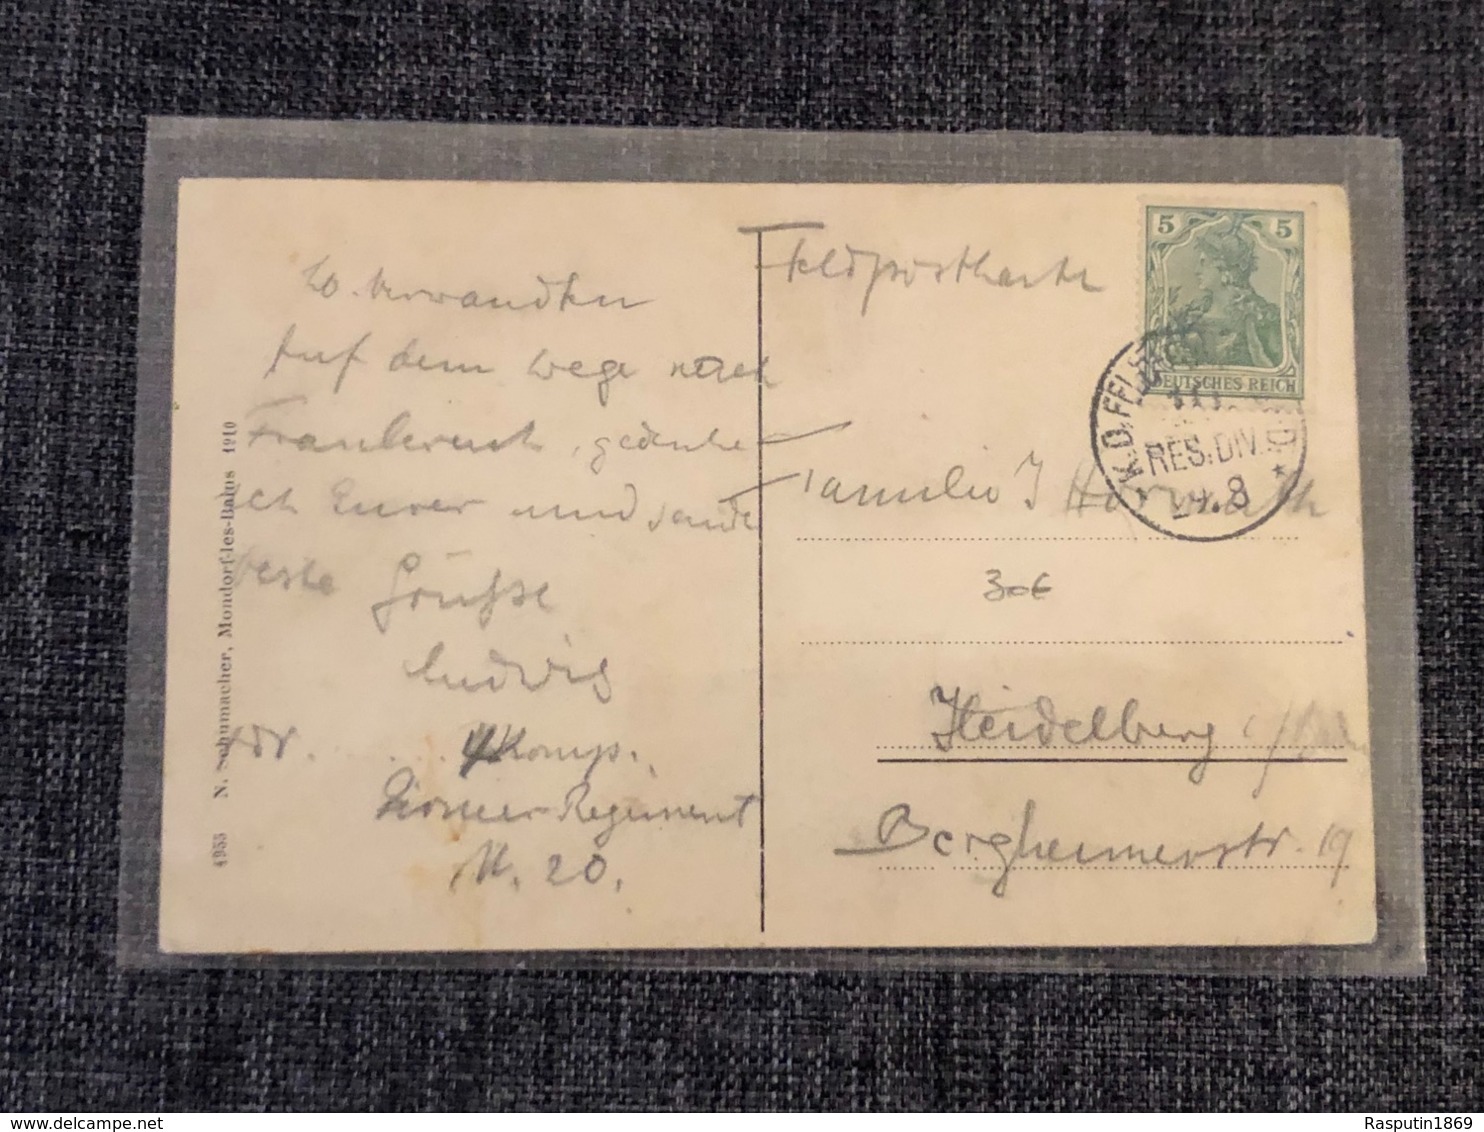 L. Verwandten
Auf dem Wege nach
Frankreich, gedenke
ich Eurer und sende
beste Grüsse
Ludwig
4 Komp.
Pionier-Regiment
N. 20.
4955 N. Schumacher, Mondorf-les-Bains 1910
Feldpostkarte
5 5
DEUTSCHES REICH
K.D. FELDPOST
RES. DIV.
8
Familie J
30€
Heidelberg
Bergheimerstr. 19
delcampe.net
Rasputin1869